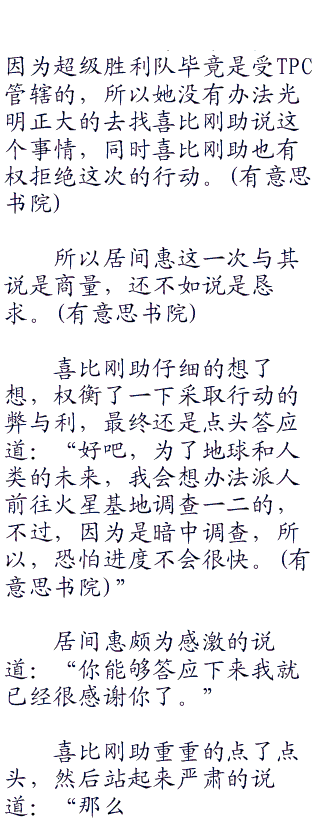 因为超级胜利队毕竟是受TPC
管辖的，所以她没有办法光
明正大的去找喜比刚助说这
个事情，同时喜比刚助也有
权拒绝这次的行动。(有意思
书院)
所以居间惠这一次与其
说是商量，还不如说是恳
求。(有意思书院)
喜比刚助仔细的想了
想，权衡了一下采取行动的
弊与利，最终还是点头答应
道：“好吧，为了地球和人
类的未来，我会想办法派人
前往火星基地调查一二的，
不过，因为是暗中调查，所
以，恐怕进度不会很快。(有
意思书院)”
居间惠颇为感激的说
道：“你能够答应下来我就
已经很感谢你了。”
喜比刚助重重的点了点
头，然后站起来严肃的说
道：“那么